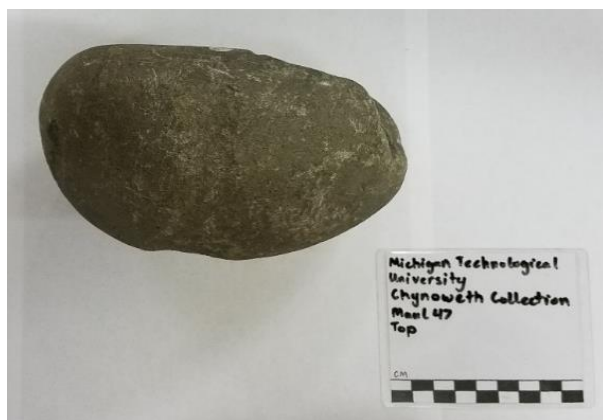 Michigan Technological
University
Chynoweth Collection
Maul 47
Top
CM